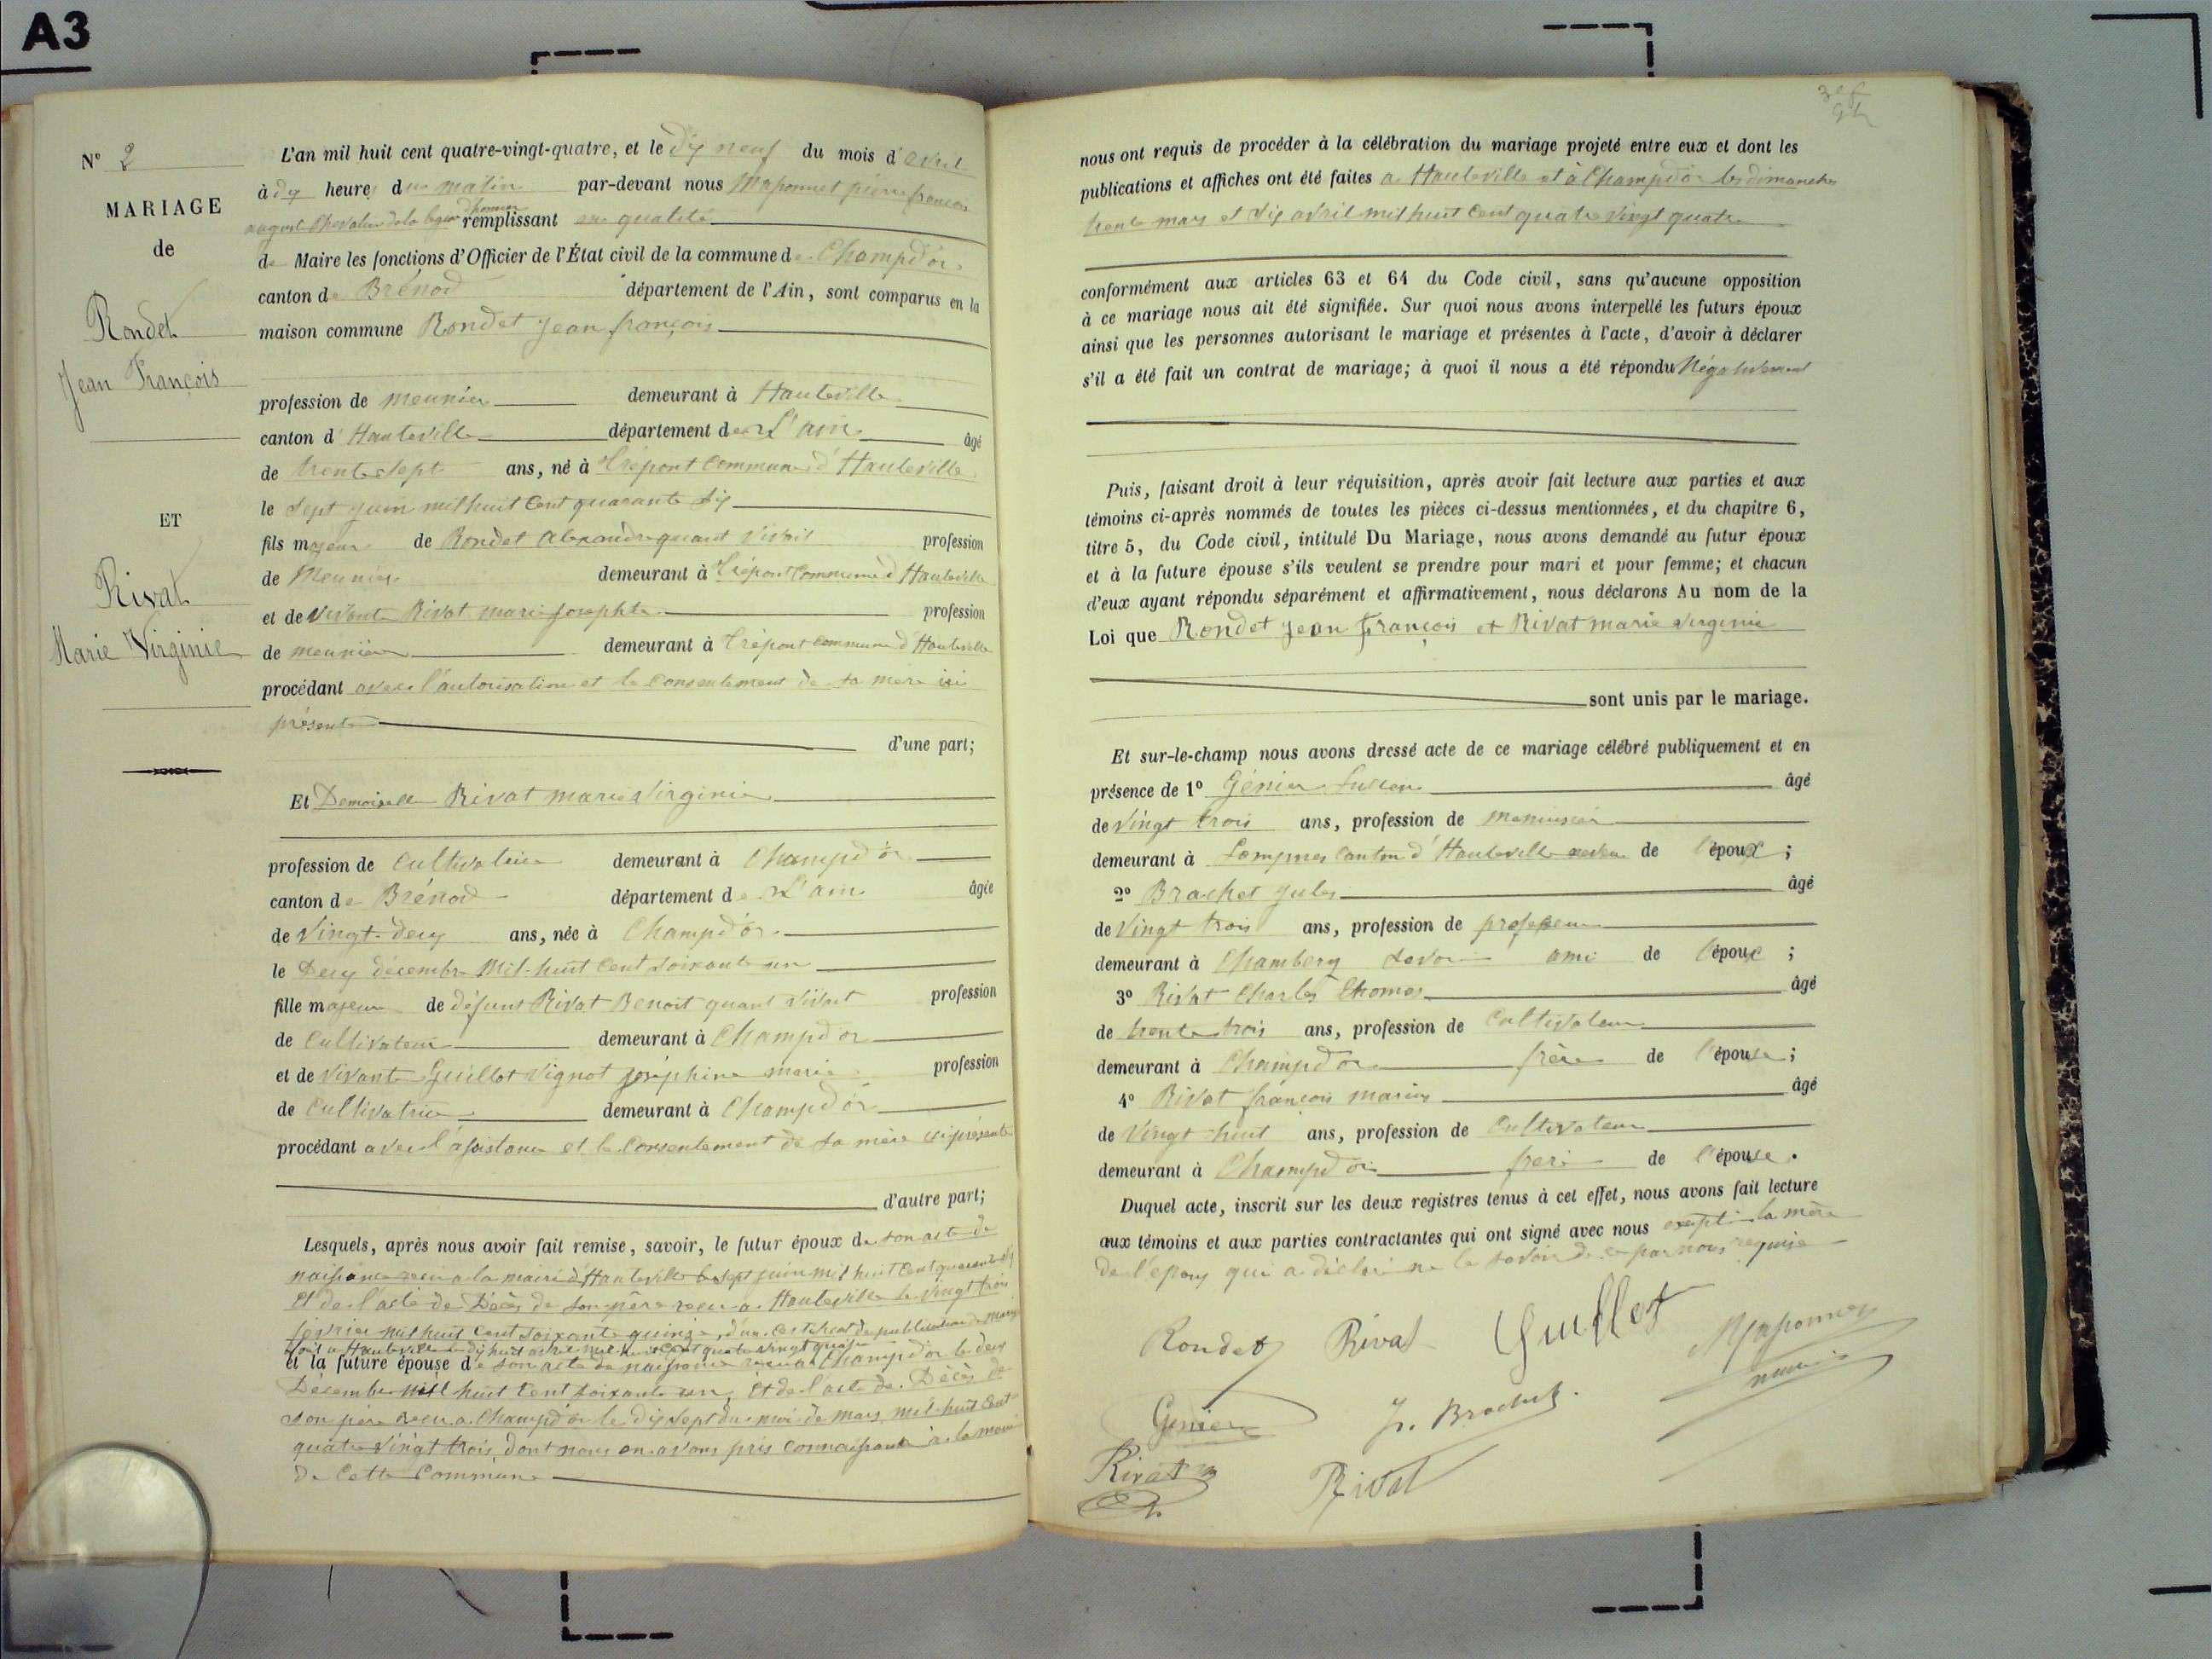 A3
N° 2
MARIAGE
de
Rondet
Jean François
ET
Rivat
Marie Virginie
L'an mil huit cent quatre-vingt-quatre, et le dix neuf du mois d'avril
à dix heures du matin par-devant nous Maponnet pierre françois
august Chevalier de la legion d'honneur remplissant en qualité
de Maire les fonctions d'Officier de l'État civil de la commune de Champdor
canton de Brénod département de l'Ain, sont comparus en la
maison commune Rondet jean françois
profession de meunier demeurant à Hauteville
canton d'Hauteville département de L'ain âgé
de trente sept ans, né à Trépont commune d'Hauteville
le sept juin mil huit cent quarante six
fils majeur de Rondet alexandre quant vivait profession
de Meunier demeurant à Trépont commune d'Hauteville
et de vivante Rivat marie josephte profession
de meunière demeurant à Trépont commune d'Hauteville
procédant avec l'autorisation et le consentement de sa mère ici
présente d'une part;
Et Demoiselle Rivat marie Virginie
profession de cultivatrice demeurant à Champdor
canton de Brénod département de L'ain âgée
de vingt-deux ans, née à Champdor
le Deux décembre Mil-huit cent soixante un
fille majeure de défunt Rivat Benoit quant vivait profession
de cultivateur demeurant à Champdor
et de vivante Guillot Vignot joséphine marie profession
de cultivatrice demeurant à Champdor
procédant avec l'assistance et le consentement de sa mère ici présente
d'autre part;
Lesquels, après nous avoir fait remise, savoir, le futur époux de son acte de
naissance recu a la mairie d'Hauteville le sept juin mil huit cent quarante six
Et de l'acte de Décès de son père recu a Hauteville le vingt trois
février mil huit cent soixante quinze, d'un certificat de publication de mariage
fait a Hauteville le dix huit avril mil huit cent quatre vingt quatre
et la future épouse de son acte de naissance recu a Champdor le deux
Décembre mil huit cent soixante un, Et de l'acte de Décès de
son père recu a Champdor le dix sept du moi de mars mil huit cent
quatre vingt trois, dont nous en avons pris connaissance à la mairie
de cette commune
nous ont requis de procéder à la célébration du mariage projeté entre eux et dont les
publications et affiches ont été faites a Hauteville et à Champdor les dimanches
trente mars et six avril mil huit cent quatre vingt quatre
conformément aux articles 63 et 64 du Code civil, sans qu'aucune opposition
à ce mariage nous ait été signifiée. Sur quoi nous avons interpellé les futurs époux
ainsi que les personnes autorisant le mariage et présentes à l'acte, d'avoir à déclarer
s'il a été fait un contrat de mariage; à quoi il nous a été répondu Négativement
Puis, faisant droit à leur réquisition, après avoir fait lecture aux parties et aux
témoins ci-après nommés de toutes les pièces ci-dessus mentionnées, et du chapitre 6,
titre 5, du Code civil, intitulé Du Mariage, nous avons demandé au futur époux
et à la future épouse s'ils veulent se prendre pour mari et pour femme; et chacun
d'eux ayant répondu séparément et affirmativement, nous déclarons Au nom de la
Loi que Rondet jean françois et Rivat marie virginie
sont unis par le mariage.
Et sur-le-champ nous avons dressé acte de ce mariage célébré publiquement et en
présence de 1° Génier âgé
de vingt trois ans, profession de menuisier
demeurant à Lompnes canton d'Hauteville de l'époux;
2° Brachet jules âgé
de vingt trois ans, profession de professeur
demeurant à Chambery savoie ami de l'époux;
3° Rivat Charles Thomas âgé
de trente trois ans, profession de Cultivateur
demeurant à Champdor frère de l'épouse;
4° Rivat françois marius âgé
de vingt huit ans, profession de Cultivateur
demeurant à Champdor frere de l'épouse.
Duquel acte, inscrit sur les deux registres tenus à cet effet, nous avons fait lecture
aux témoins et aux parties contractantes qui ont signé avec nous excepté la mère
de l'epoux qui a déclaré ne le savoir de ce par nous requise
Rondet Rivat Guillot Maponnet
Genier J. Brachet
Rivat Rivat